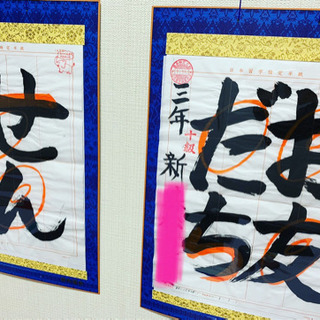 お友
だち
十級
三年 新
せん